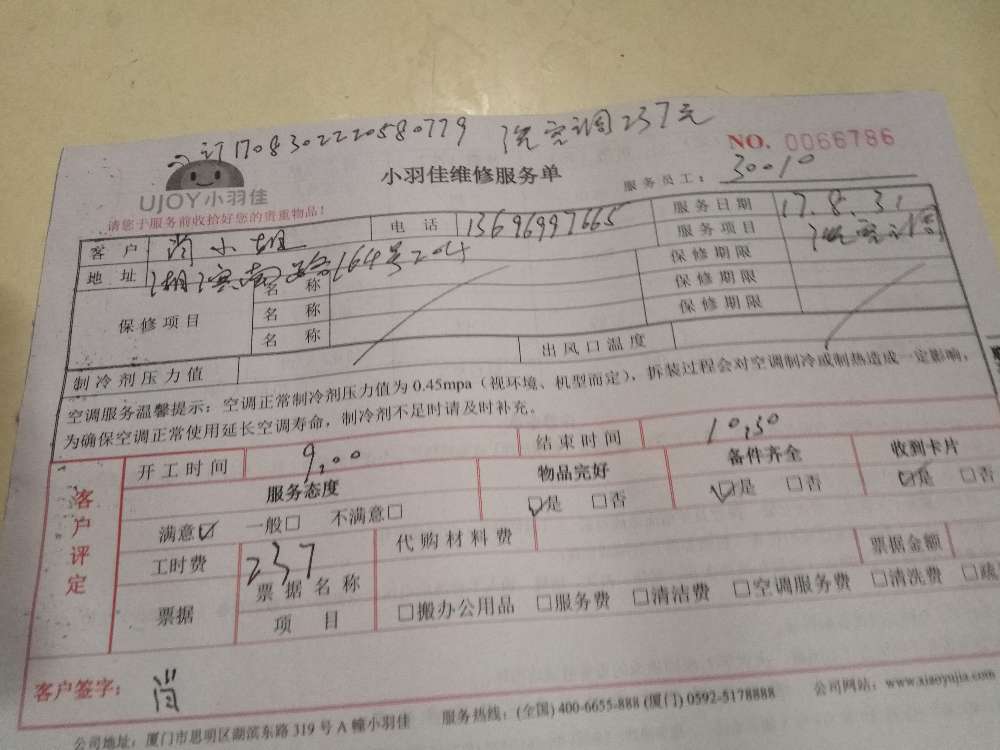 订1708302220580779 洗空调237元
NO. 0066786
UJOY小羽佳
小羽佳维修服务单
服务员工: 30010
请您于服务前收拾好您的贵重物品!
客户 肖小姐 电话 13696997665 服务日期 17.8.31
地址 湖滨南路164号204 服务项目 洗空调
保修项目 名称 保修期限
名称 保修期限
名称 保修期限
制冷剂压力值 出风口温度
空调服务温馨提示：空调正常制冷剂压力值为0.45mpa（视环境、机型而定），拆装过程会对空调制冷或制热造成一定影响，
为确保空调正常使用延长空调寿命，制冷剂不足时请及时补充。
客户评定
开工时间 9:00 结束时间 10:30
服务态度 物品完好 备件齐全 收到卡片
满意☑ 一般□ 不满意□ ☑是 □否 ☑是 □否 ☑是 □否
工时费 237 代购材料费 票据金额
票据 票据名称 □搬办公用品 □服务费 □清洁费 □空调服务费 □清洗费 □疏
项目
客户签字： 肖
公司地址：厦门市思明区湖滨东路319号A幢小羽佳 服务热线：(全国) 400-6655-888 (厦门) 0592-5178888 公司网站：www.xiaoyujia.com